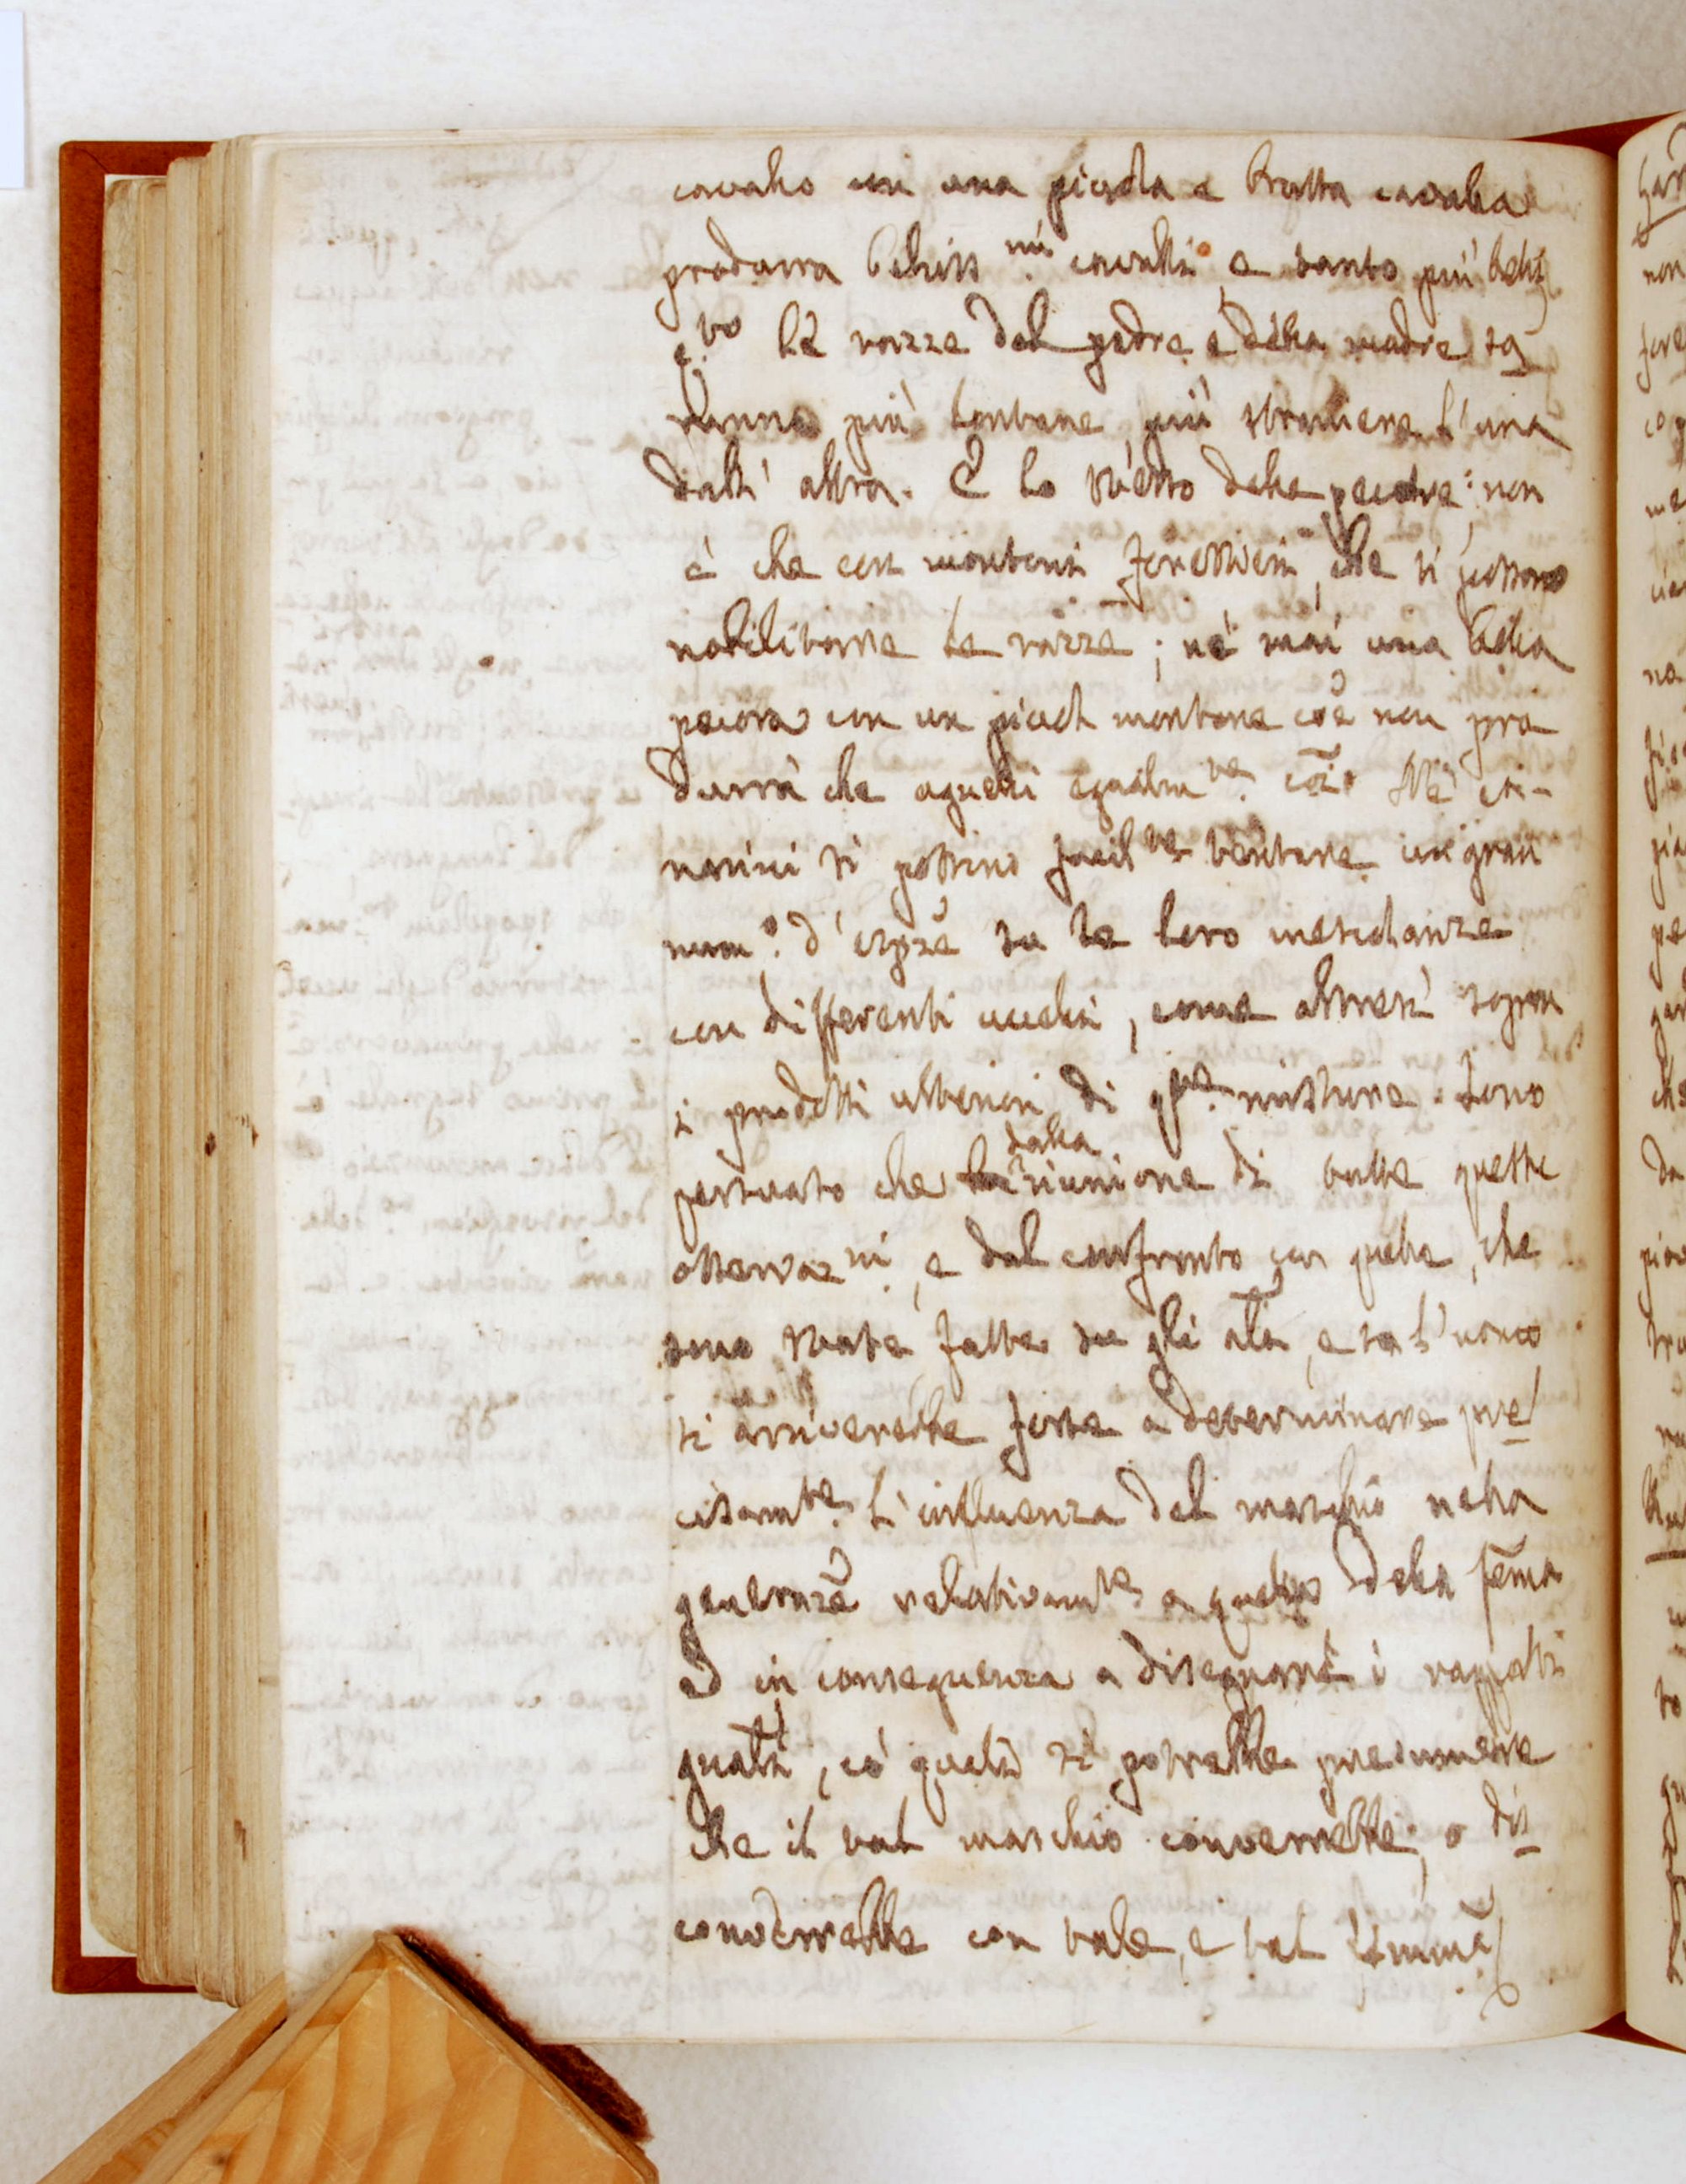 cavallo con una picola e brutta cavalla
produrra bellissmi cavalli, e tanto più belli
q.to le razze del padre e della madre sa
ranno più lontane, più straniere l'una
dall' altra. È lo stesso delle pecore: non
è che con montoni forestieri, che si possono
nobilitarne le razze; nè mai una bella
pecora con un picol montone cõe non pro
durrà che agnelli egualm.te cõi.
narini si possono facil.te tentare un gran
num.o d'espze su la loro meschianza
con differenti uccelli, come altresì sopra
i prodotti ulteriori di q.sta mistura. Sono
persuato che dalla riunione di tutte queste
osservaz.ni, e dal confronto con quelle, che
sono state fatte su gli ali, e su l'uomo
si arriverebbe forse a determinare pre
cisam.te l'influenza del maschio nella
generazẽ relativam.te a quella della fẽma
ed in conseguenza a disegnare i rapporti
grali, co' quali si potrebbe presumere
che il tal maschio converrebbe, o dis
converrebbe con tale, e tal fẽmina